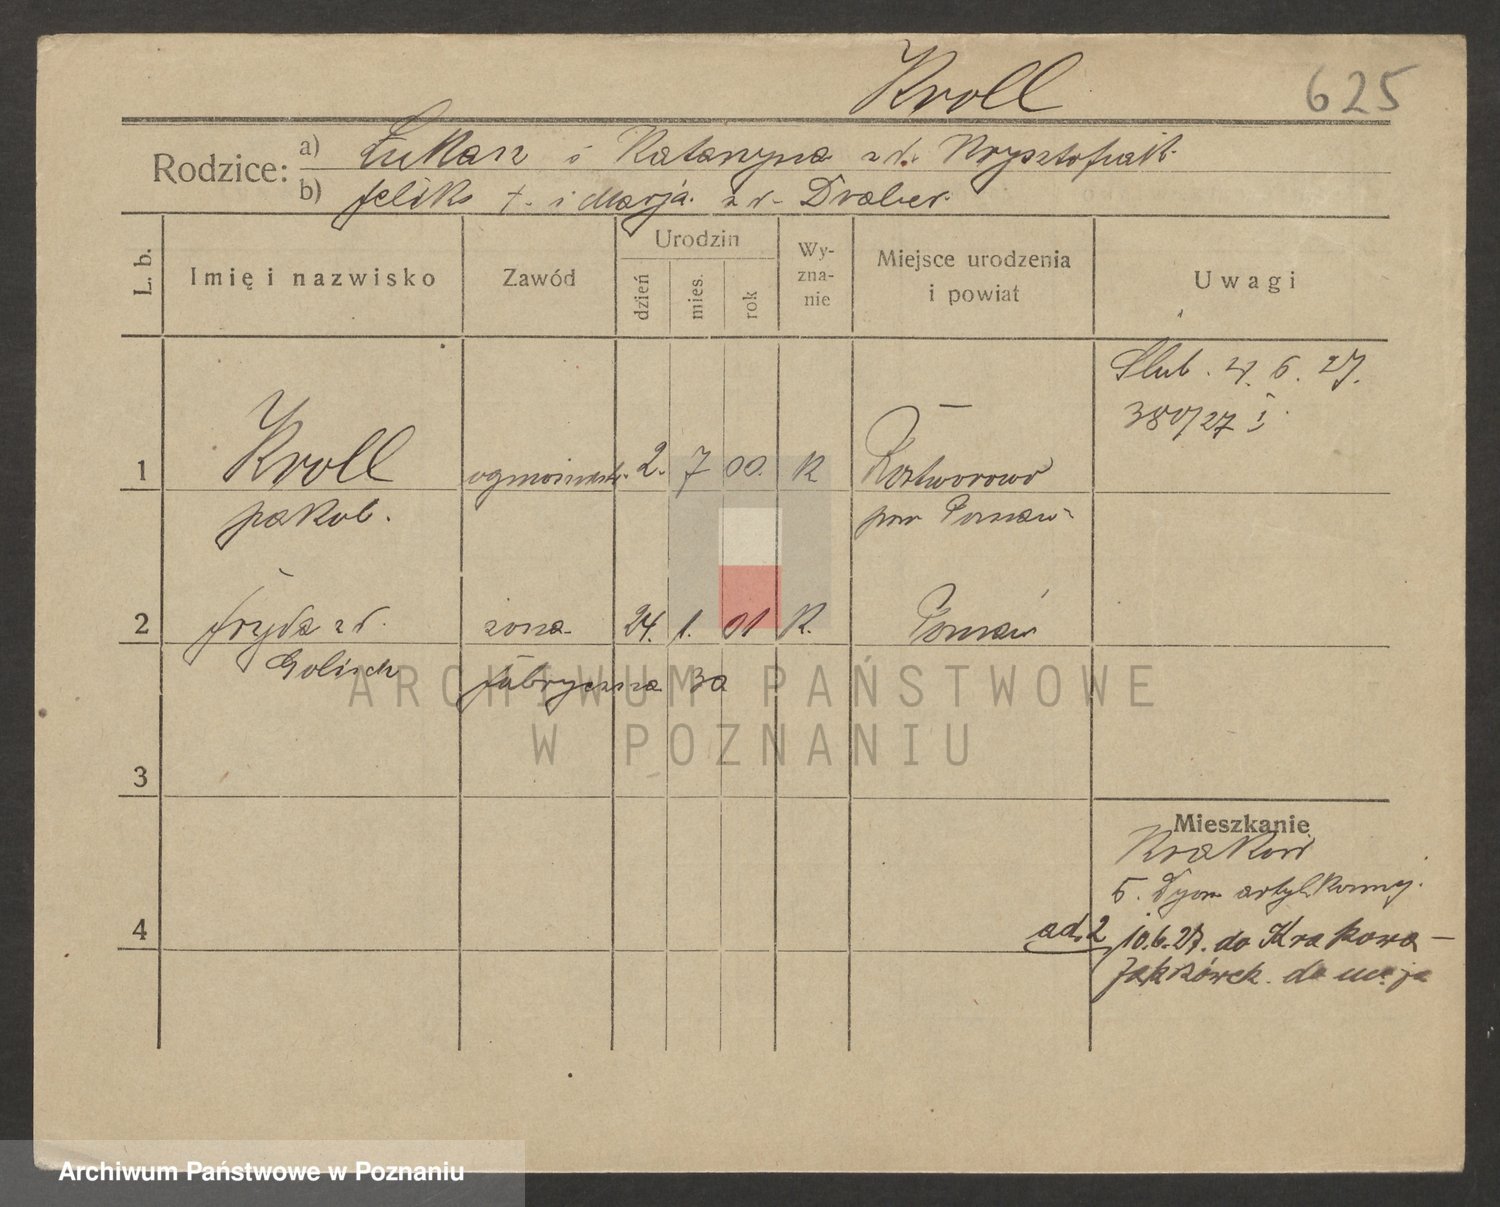 Kroll 625
Rodzice: a) Łukasz i Katarzyna z d.
b) Feliks †. i Marja z d. Draber.
L. b. Imię i nazwisko Zawód Urodzin dzień mies. rok Wy-zna-nie Miejsce urodzenia i powiat Uwagi
Ślub. 6. 27.
380/27 I
1 Kroll 2. 7 00. K Roztworowo
Jakob. pow Poznań
2 Fryda z d. żona 24. 1. 01 K. Poznań
Golisch Fabryczna 30
ARCHIWUM PAŃSTWOWE
W POZNANIU
3
Mieszkanie
Kraków
5. Dyon
4 ad. 2 10.6.27. do Krakowa –
do męża
Archiwum Państwowe w Poznaniu